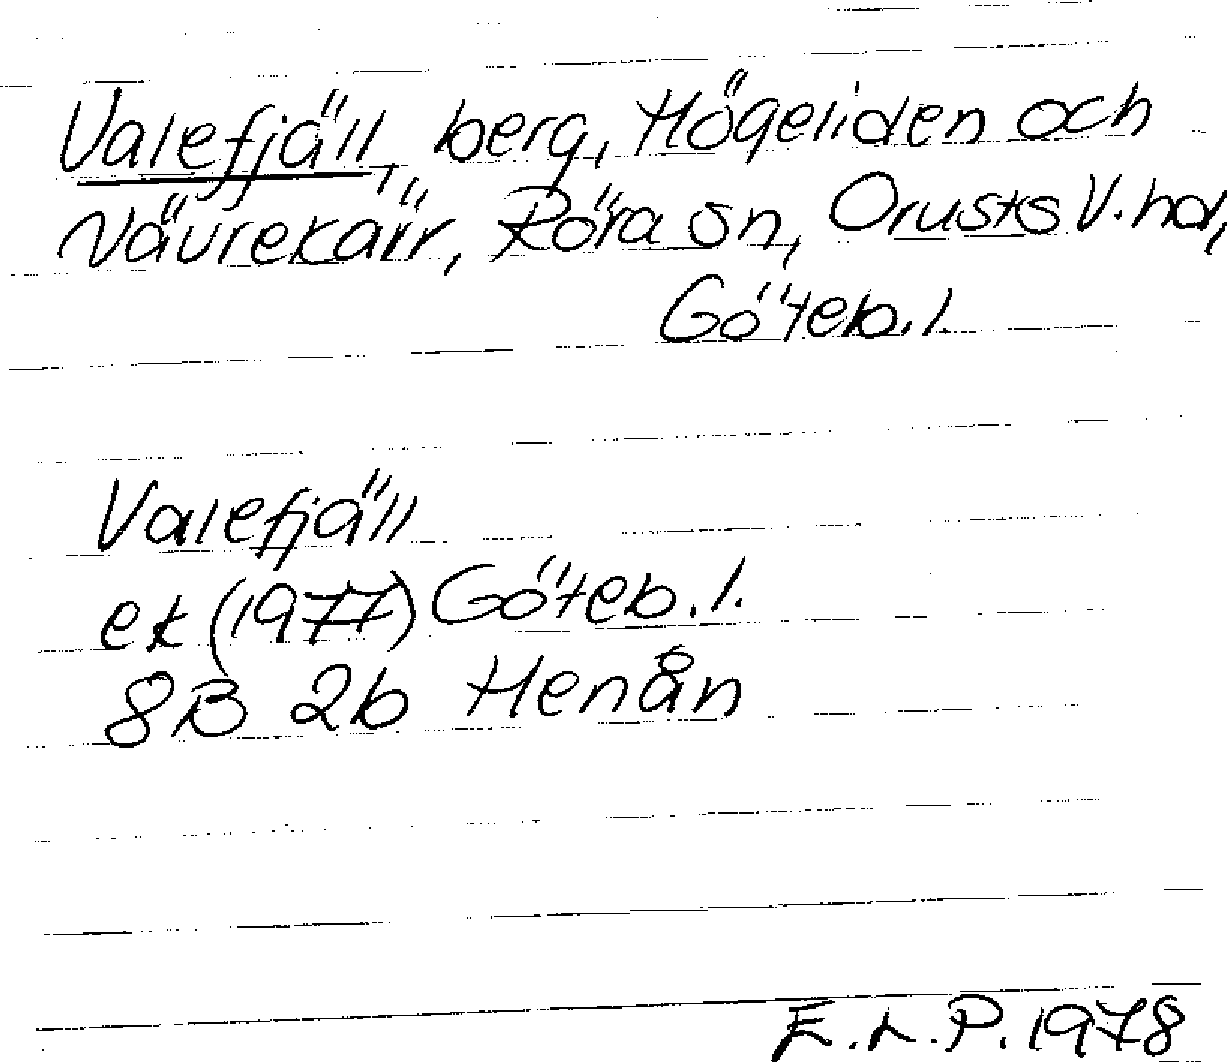 Valefjäll, berg, Högeliden och
Näurekärr, Röra sn, Orusts V. hd,
Göteb. l.
Valefjäll
ek (1977) Göteb. l.
8B 2b Henån
E.L.P. 1978